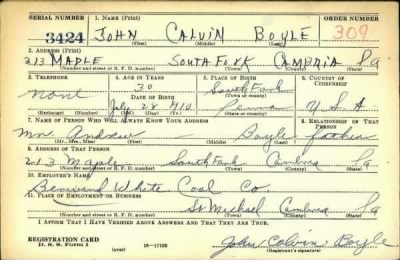 SERIAL NUMBER 1. NAME (Print) ORDER NUMBER
3424 JOHN CALVIN BOYLE 309
(First) (Middle) (Last)
2. ADDRESS (Print)
213 MAPLE SOUTH FORK CAMBRIA Pa
(Number and street or R. F. D. number) (Town) (County) (State)
3. TELEPHONE 4. AGE IN YEARS 5. PLACE OF BIRTH 6. COUNTRY OF CITIZENSHIP
none 30 South Fork
DATE OF BIRTH (Town or county)
July 28 1910 Penna U.S.A
(Exchange) (Number) (Mo.) (Day) (Yr.) (State or country)
7. NAME OF PERSON WHO WILL ALWAYS KNOW YOUR ADDRESS 8. RELATIONSHIP OF THAT PERSON
Mr. Andrew Boyle father
(Mr., Mrs., Miss) (First) (Middle) (Last)
9. ADDRESS OF THAT PERSON
213 Maple South Fork Cambria Pa
(Number and street or R. F. D. number) (Town) (County) (State)
10. EMPLOYER'S NAME
White Coal Co.
11. PLACE OF EMPLOYMENT OR BUSINESS
St Michael Cambria Pa
(Number and street or R. F. D. number) (Town) (County) (State)
I AFFIRM THAT I HAVE VERIFIED ABOVE ANSWERS AND THAT THEY ARE TRUE.
REGISTRATION CARD
D. S. S. Form 1 (over) 16-17105 John Calvin Boyle
(Registrant's signature)